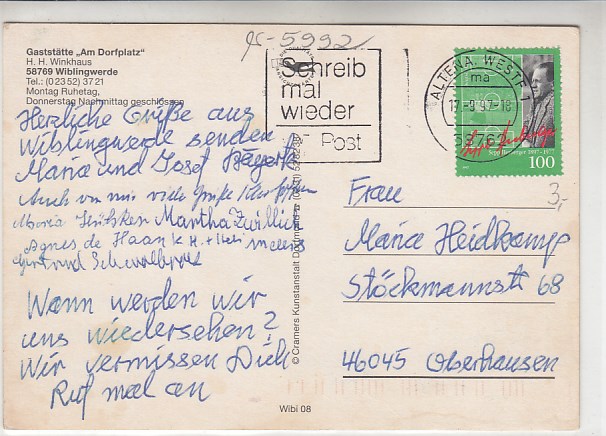 gc-5992
Gaststätte „Am Dorfplatz“
H. H. Winkhaus
58769 Wiblingwerde
Tel.: (0 23 52) 37 21
Montag Ruhetag,
Donnerstag Nachmittag geschlossen
Herzliche Grüße aus
Wiblingwerde senden
Maria und Josef
Auch von mir viele Grüße
Maria Martha Zwillich
Agnes de Haan
Gertrud
Wann werden wir
uns wiedersehen?
Wir vermissen Dich
Ruf mal an
© Cramers Kunstanstalt Dortmund
Wibi 08
Schreib
mal
wieder
Post
ALTENA, WESTF 1
ma
17.-9.97-18
58762
Sepp Herberger 1897-1977
100
3,-
Frau
Maria Heidkamp
Stöckmannstr 68
46045 Oberhausen